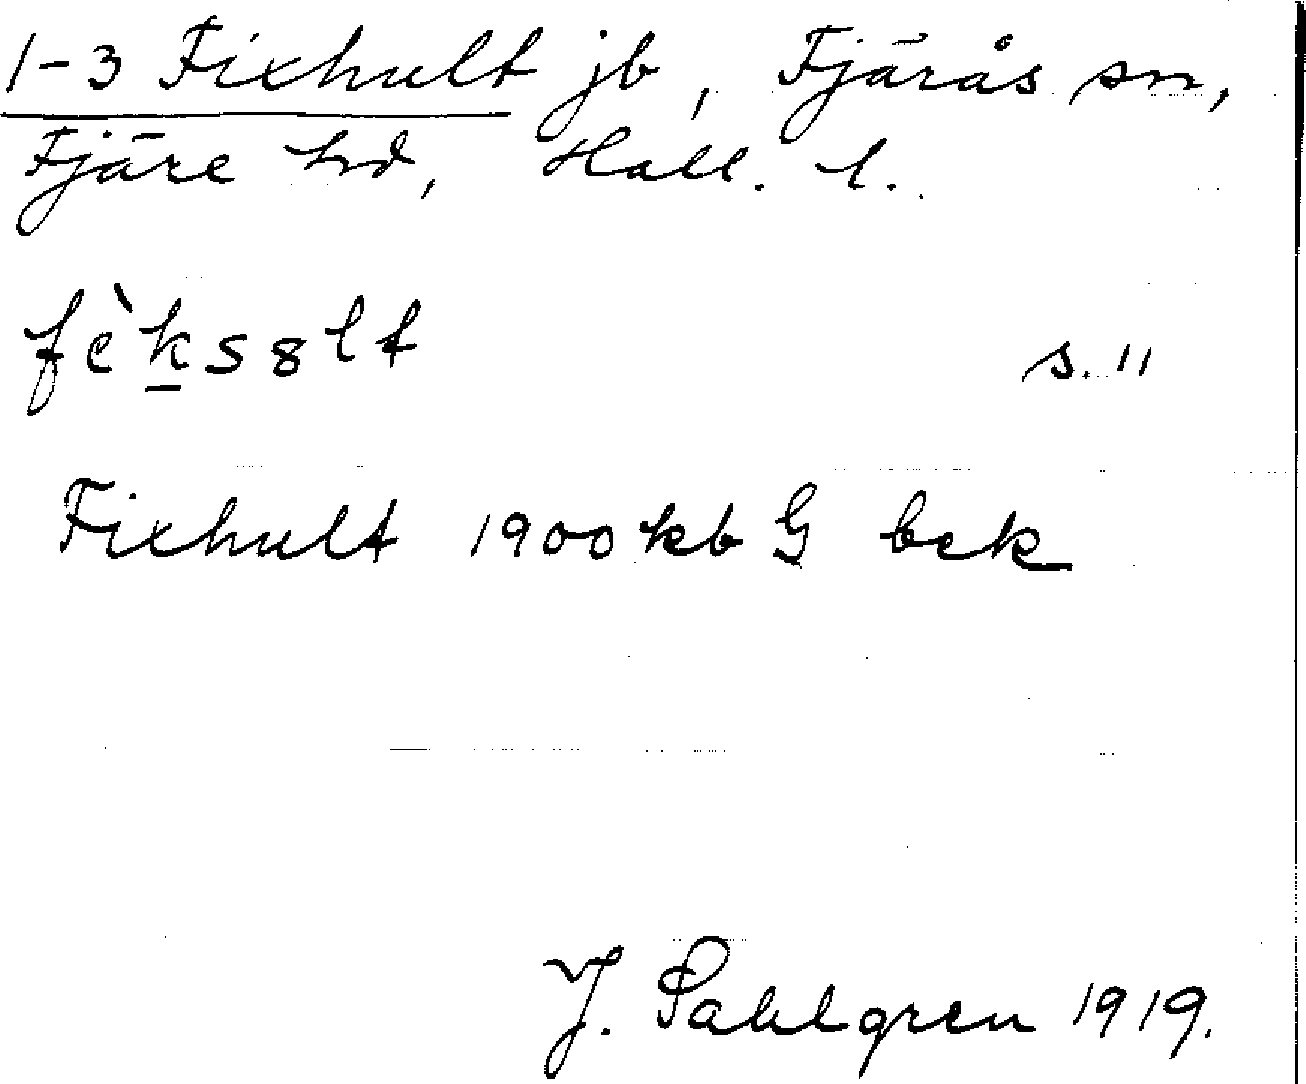 1-3 Fixhult jb, Fjärås sn,
Fjäre hd, Hall. l.
fèks8lt s. 11
Fixhult 1900 kb G bek
J. Sahlgren 1919.